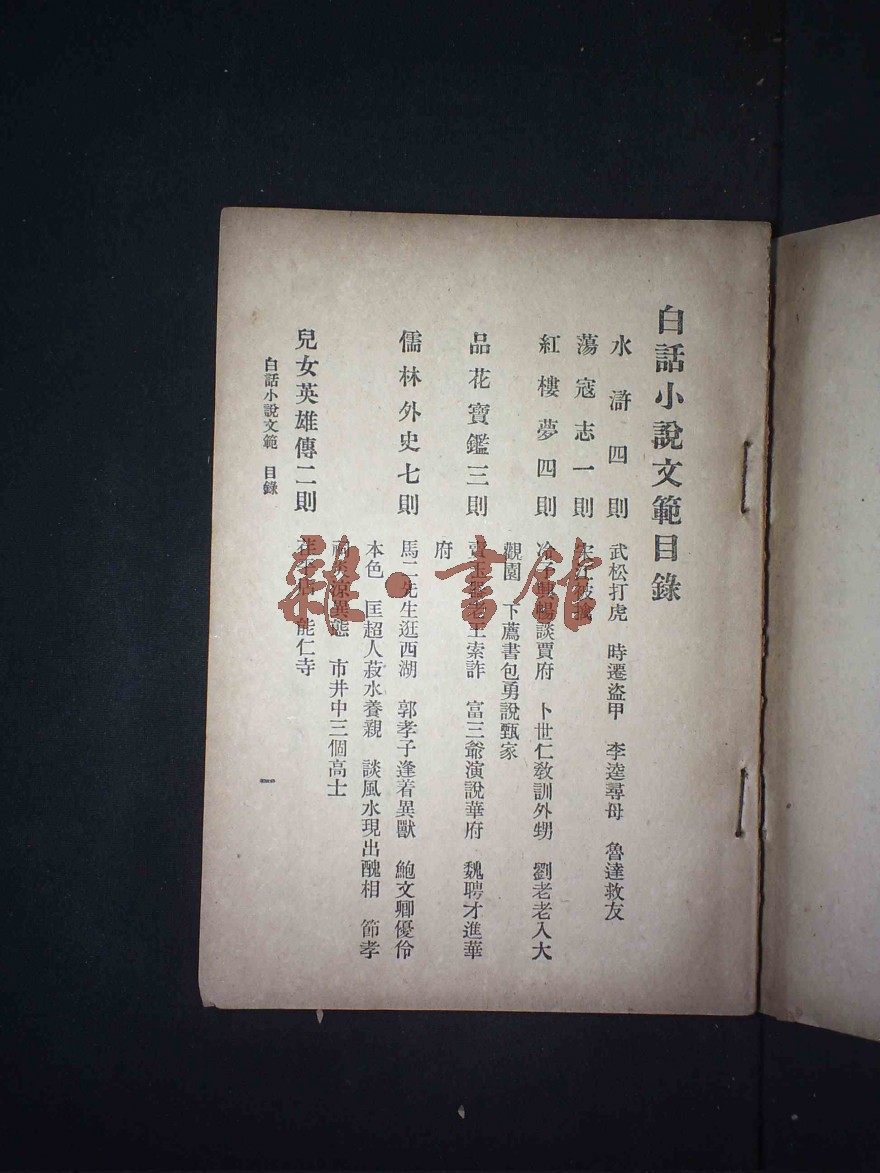 白話小說文範目錄
水滸四則 武松打虎 時遷盜甲 李逵尋母 魯達救友
蕩寇志一則 宋江被擒
紅樓夢四則 冷子興楊談賈府 卜世仁教訓外甥 劉老老入大
觀園 下薦書包勇說甄家
品花寶鑑三則 老王索詐 富三爺演說華府 魏聘才進華
府
儒林外史七則 馬二先生逛西湖 郭孝子逢着異獸 鮑文卿優伶
本色 匡超人菽水養親 談風水現出醜相 節孝
祠炎涼異態 市井中三個高士
兒女英雄傳二則 能仁寺
白話小說文範 目錄
一
雜·書館